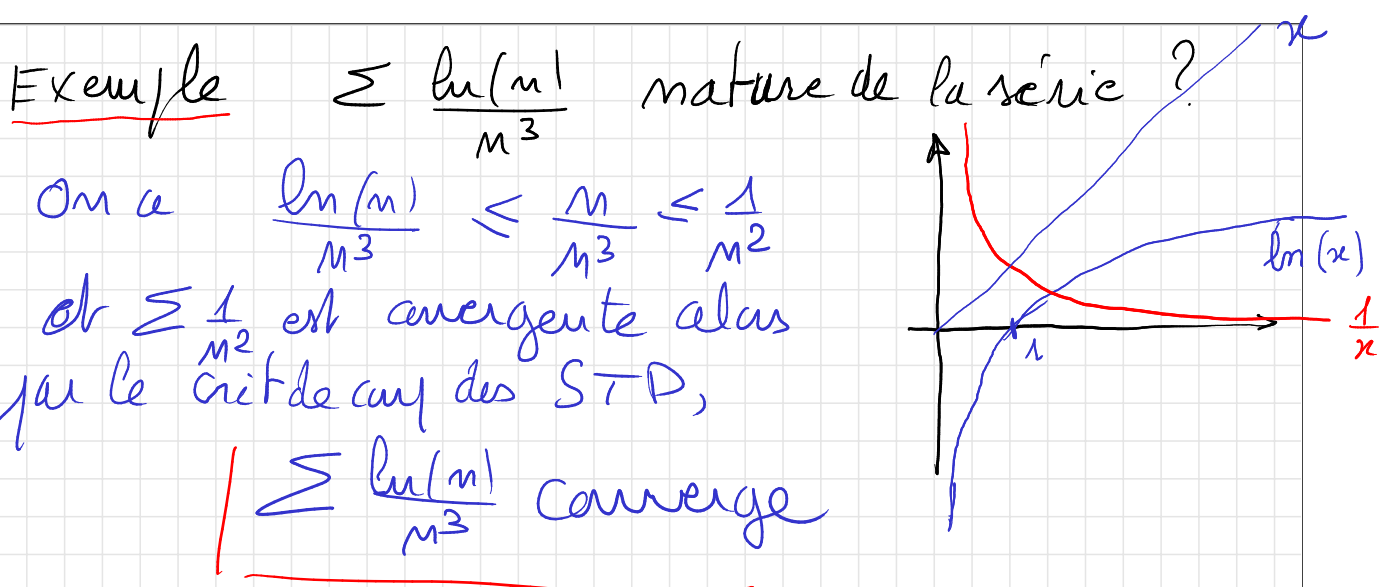 Exemple Σ ln(n)/n³ nature de la série ?
On a ln(n)/n³ ≤ n/n³ ≤ 1/n²
et Σ 1/n² est convergente alors
par le crit de comp des STP,
Σ ln(n)/n³ converge
x
ln(x)
1
1/x